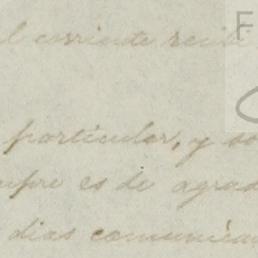 l corriente recib
particular, y so
mpre es de agrad
dias comunica